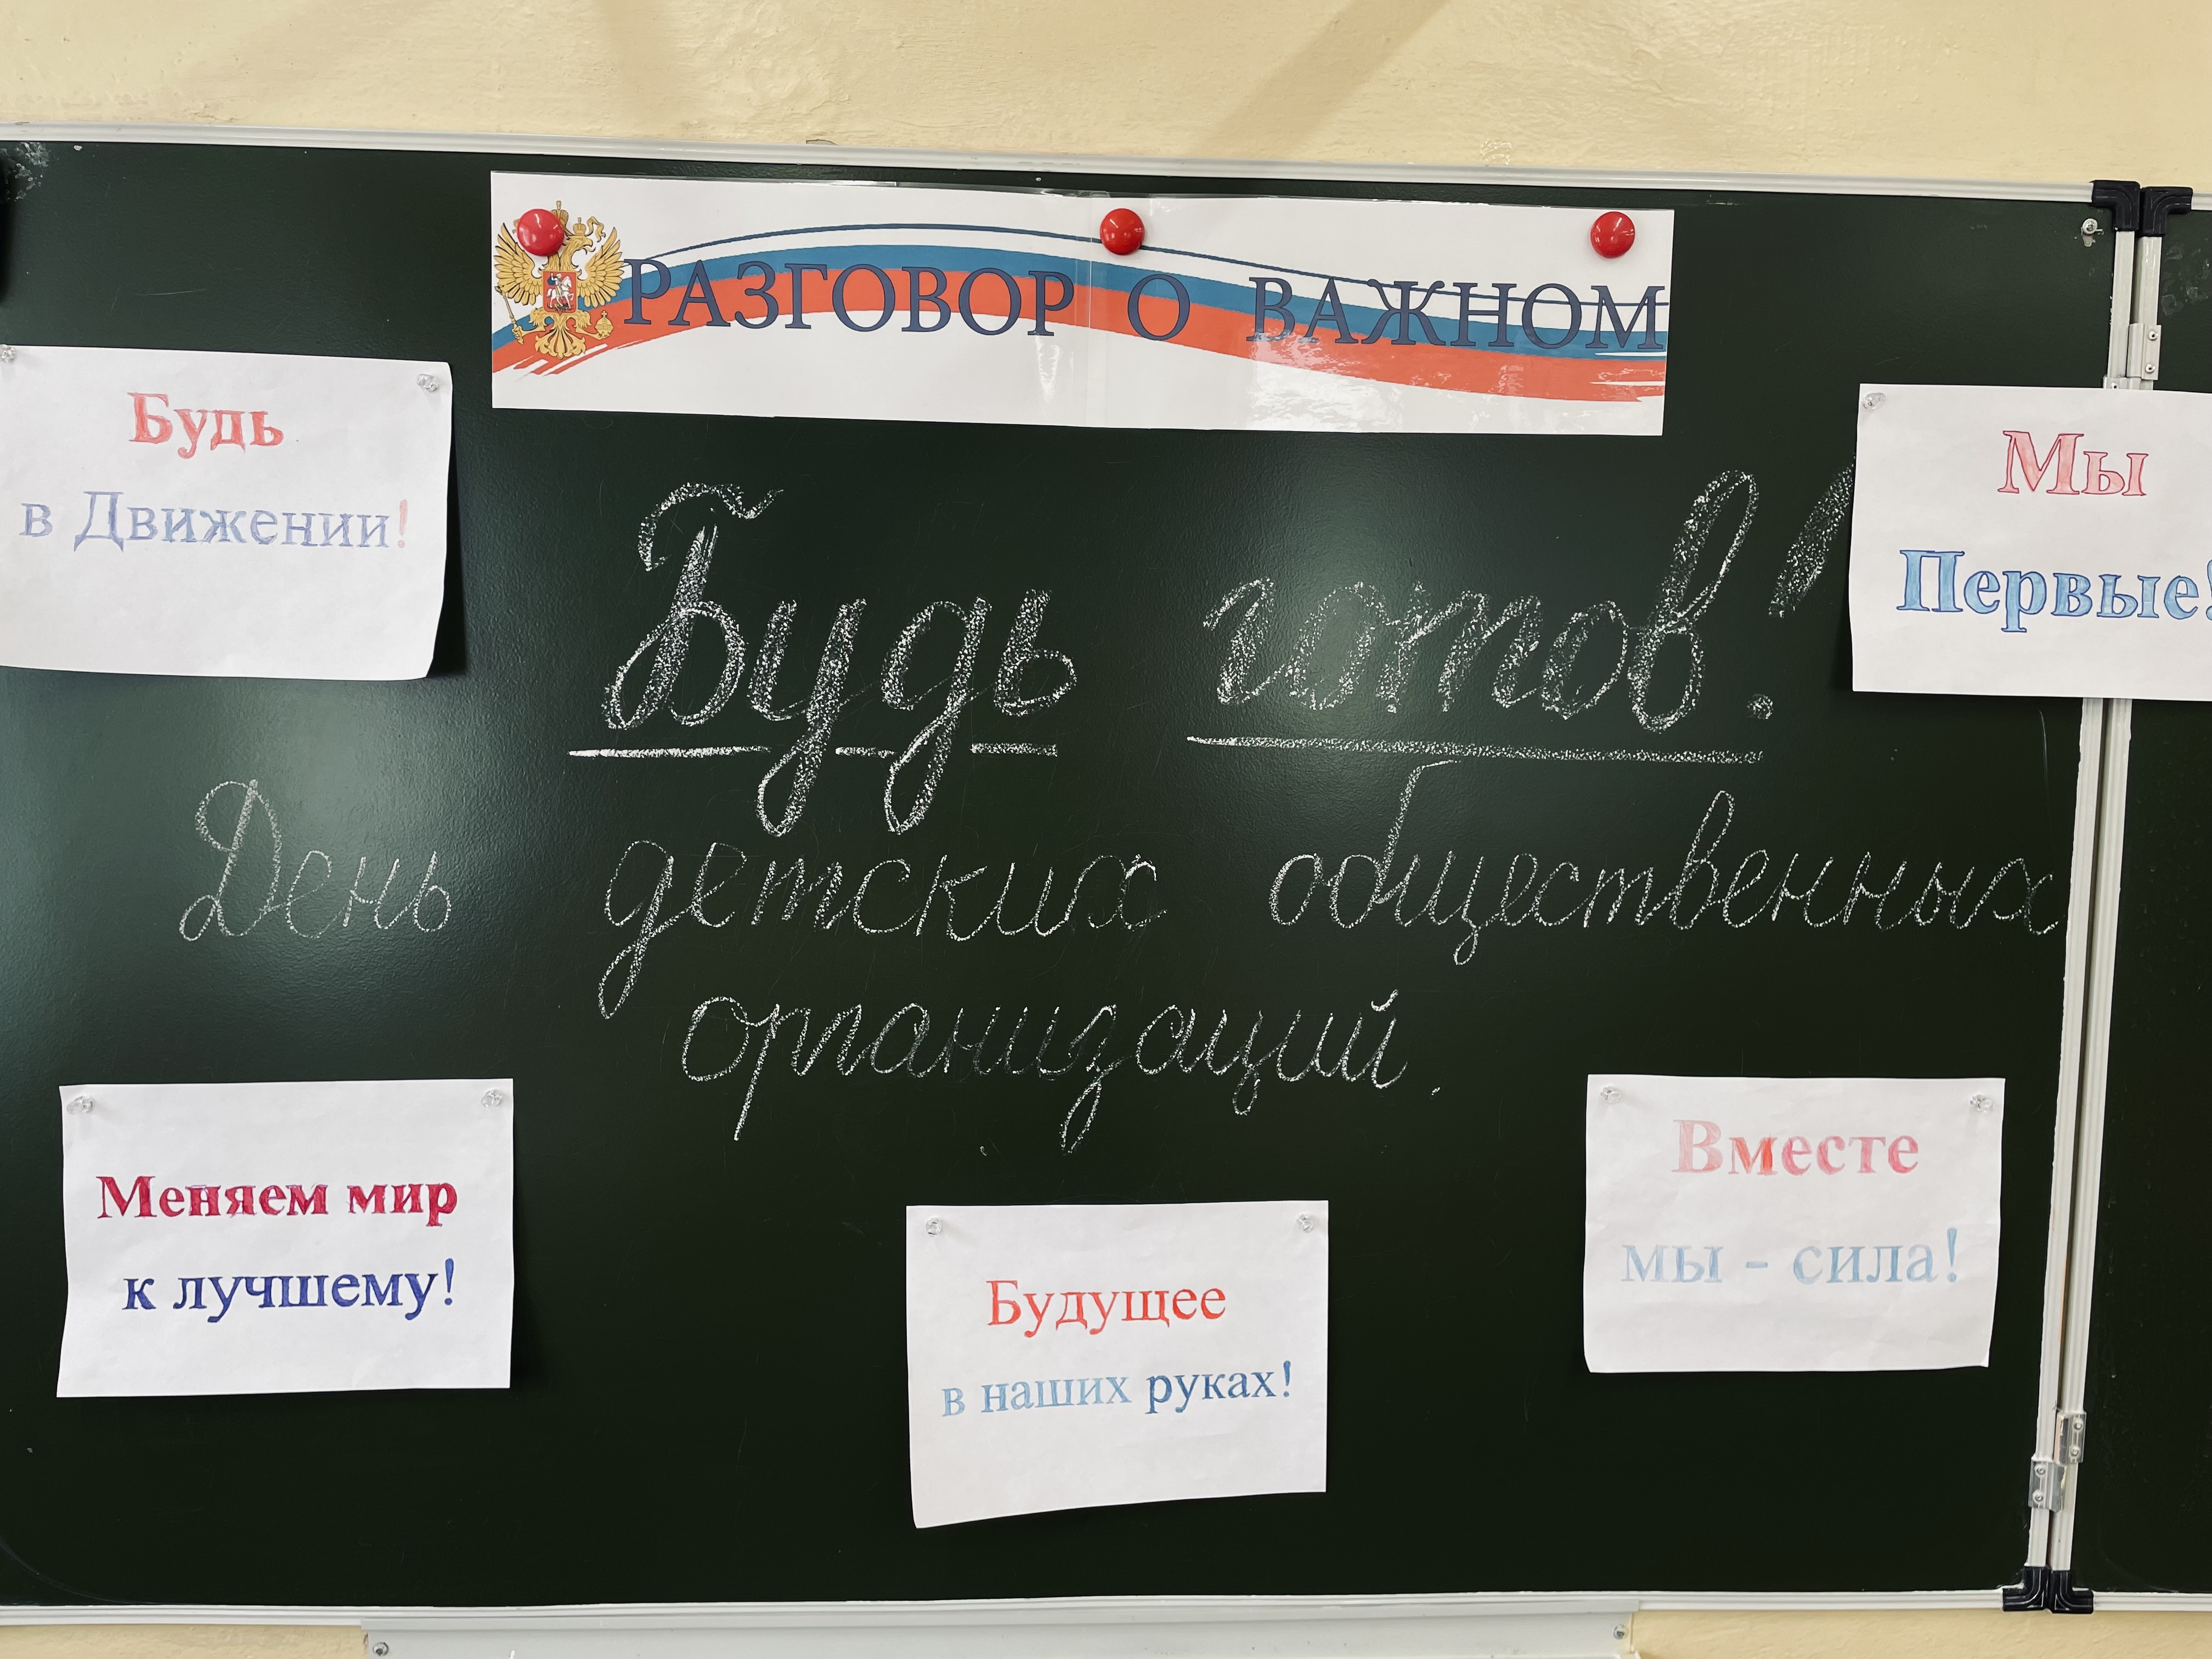 РАЗГОВОР О ВАЖНОМ
Будь
в Движении!
Мы
Первые!
Будь готов!
День детских общественных
организаций.
Меняем мир
к лучшему!
Будущее
в наших руках!
Вместе
мы - сила!